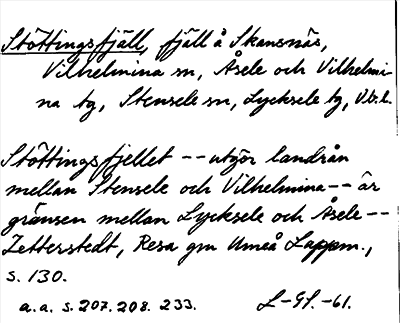 Stöttingsfjäll, fjäll å Skansnäs,
Vilhelmina sn, Åsele och Vilhelmi-
na tg, Stensele sn, Lycksele tg, V.b.l.
Stöttingsfjellet -- utgör landrån
mellan Stensele och Vilhelmina -- är
gränsen mellan Lycksele och Åsele --
Zetterstedt, Resa gm Umeå Lappm.,
s. 130.
a.a. s. 207. 208. 233. L-Gl. -61.